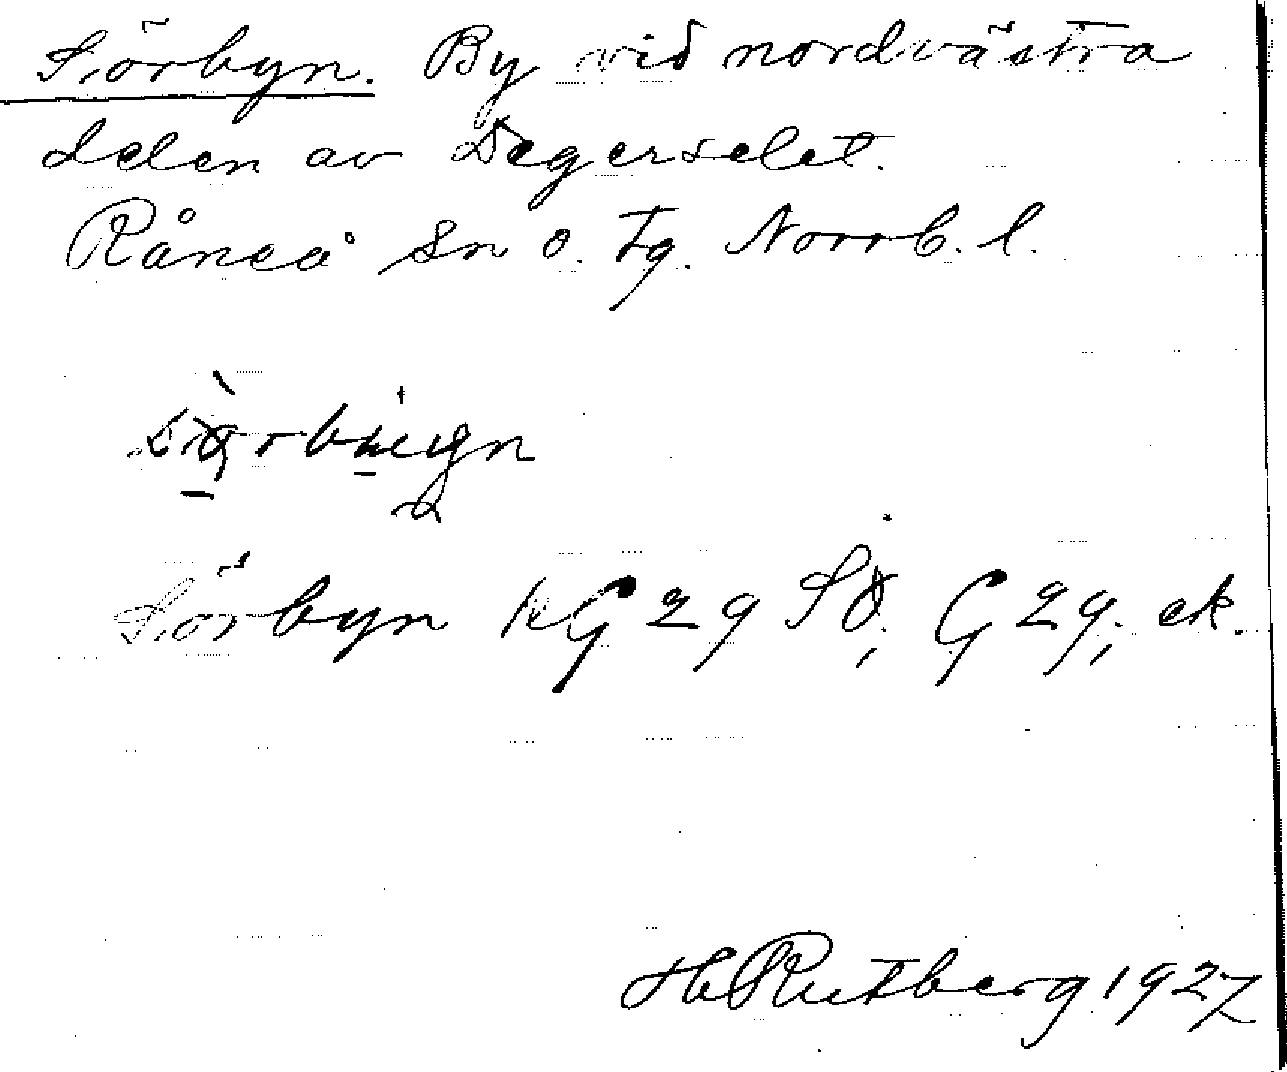 Sörbyn. By vid nordvästra
delen av Degerselet.
Råneå sn o. tg. Norrb. l.
Sörbyn KG 29 SÖ, G 29, ek.
H Rutberg 1927